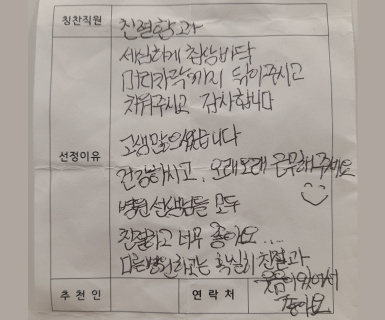 칭찬직원
친절함과
세심하게 침상바닥
머리카락까지 뒤어주시고
치워주시고 감사합니다
선정이유
고생많으셨습니다
건강하시고, 오래오래 근무해주세요
병원 선생님들 모두
친절하고 너무 좋아요...
다른병원하고는 확실히 친절과
웃음이있어서
좋아요
추천인
연락처